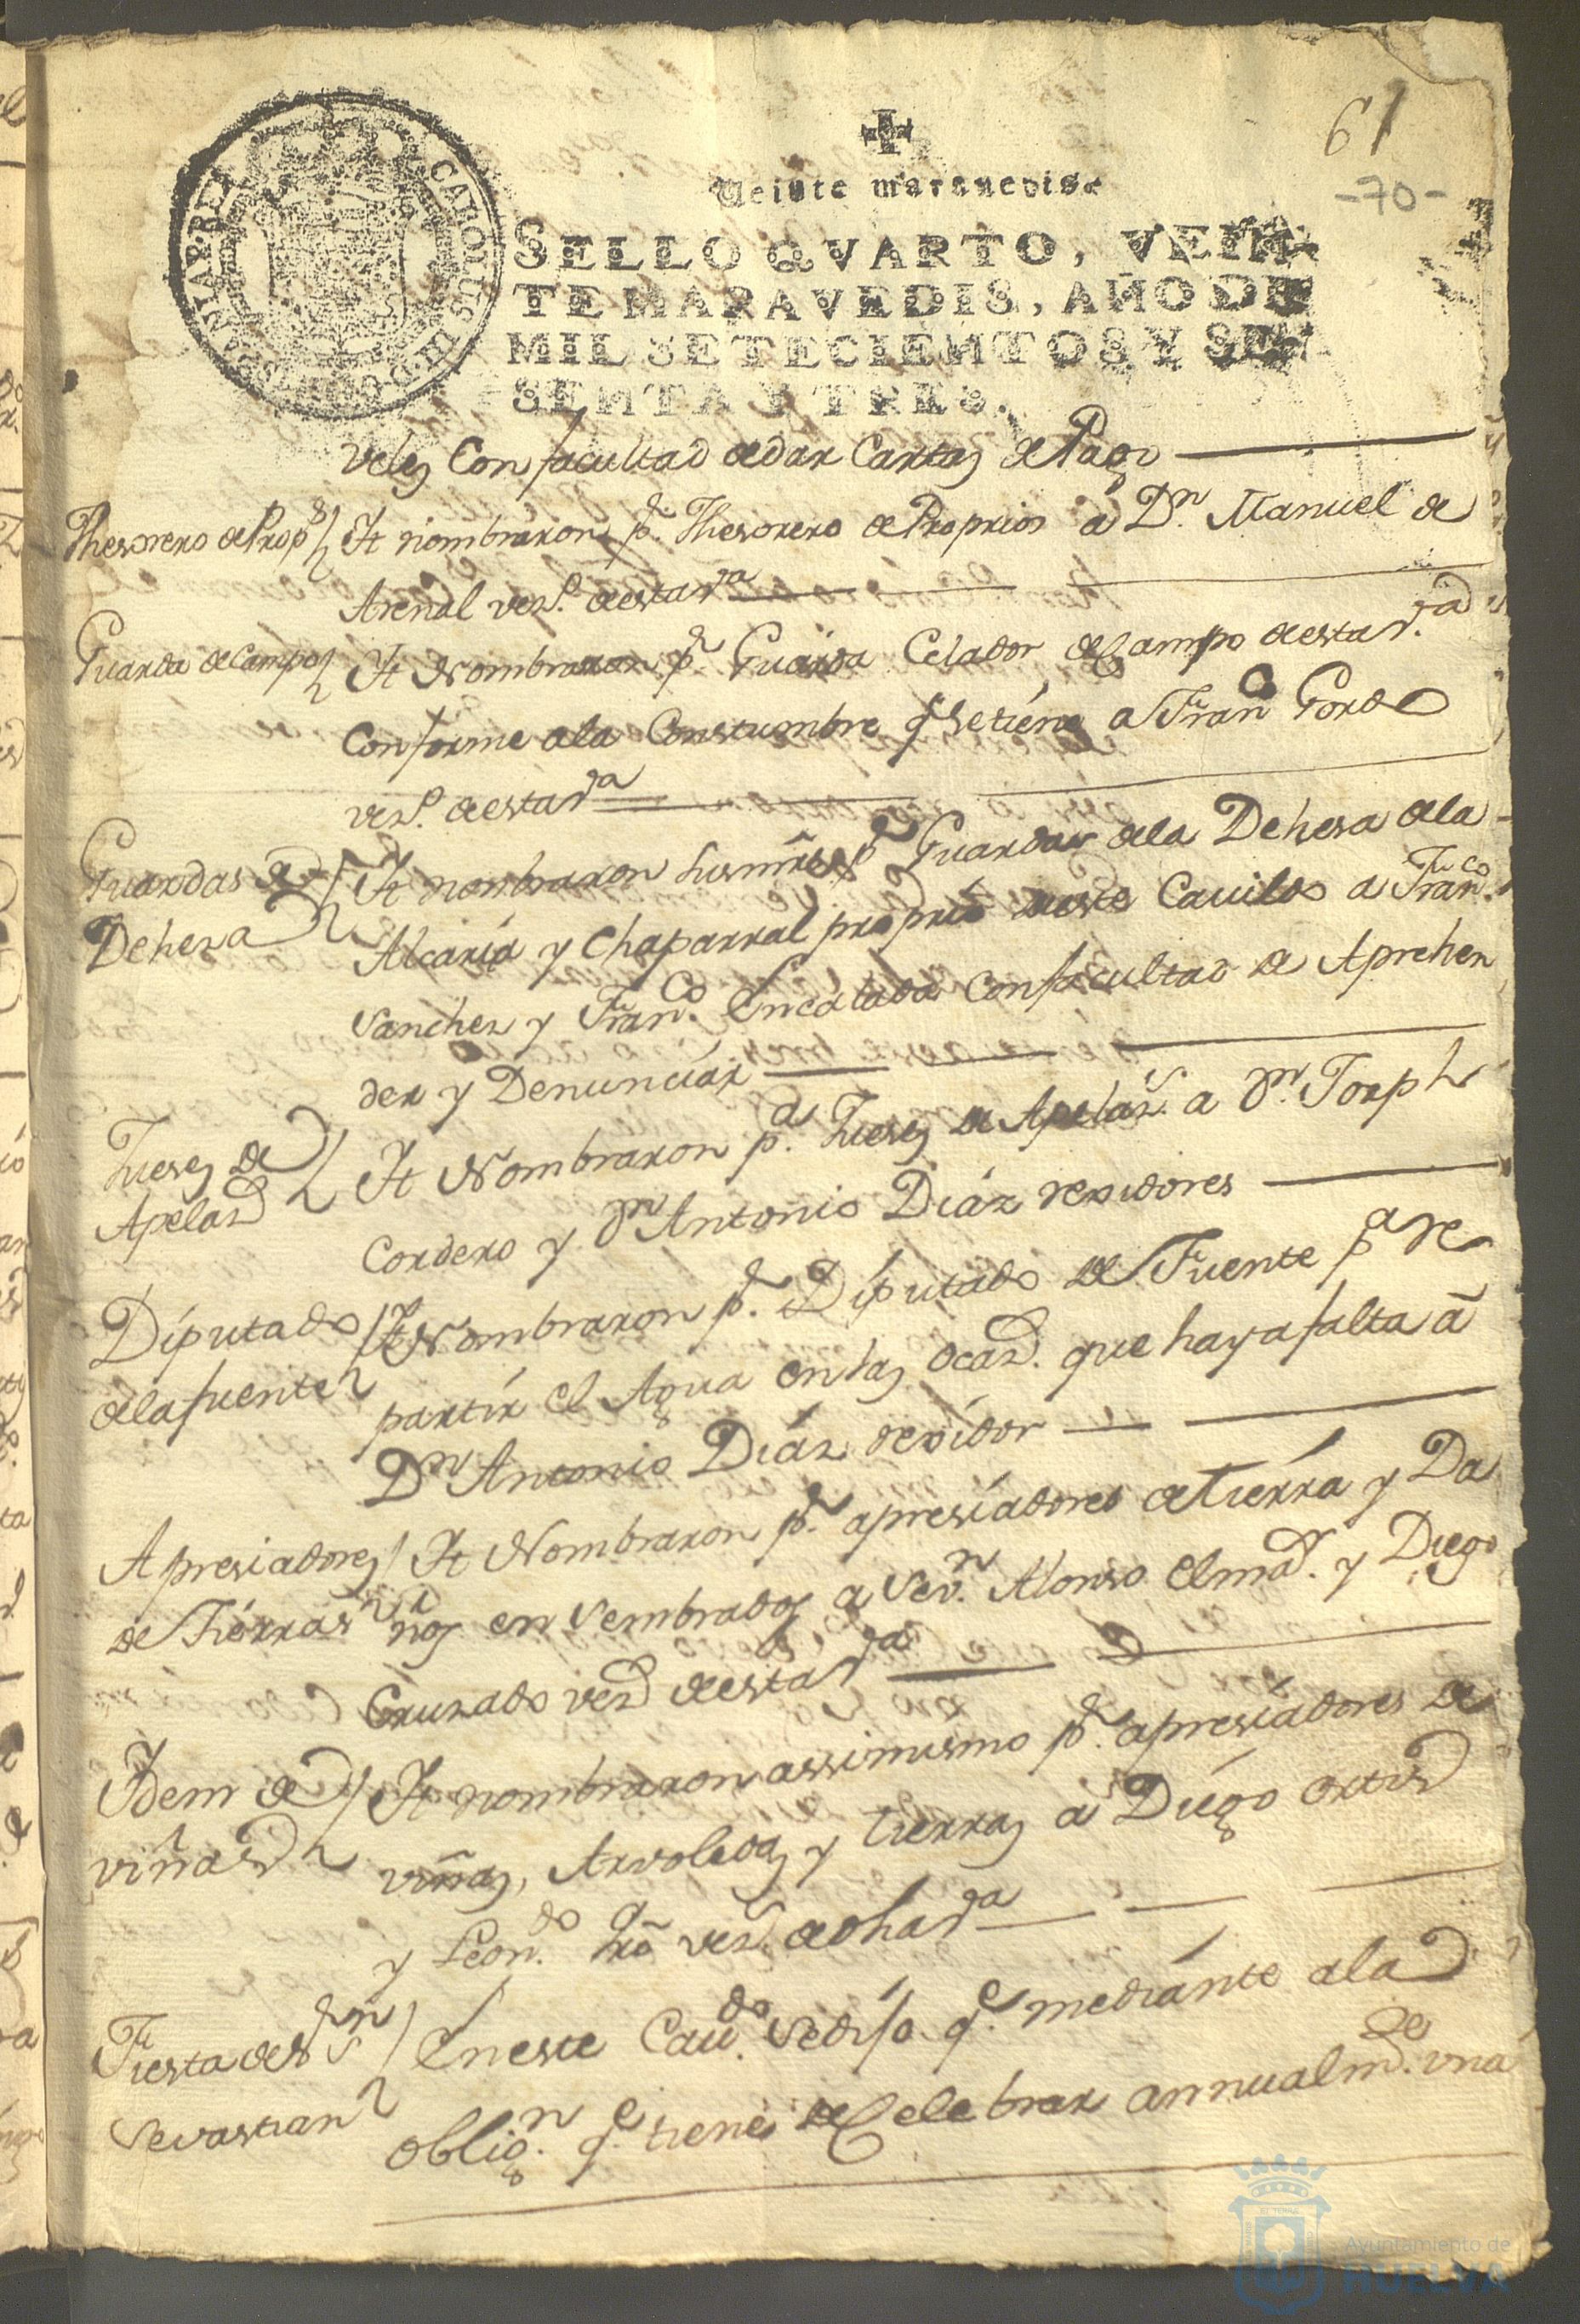 61
-70-
Veinte maravedis.
SELLO QVARTO, VEIN-
TE MARAVEDIS, AÑO DE
MIL SETECIENTOS Y SE-
SENTA Y TRES.
CAROLUS III D G HISPANIAR REX
veles Con facultad de dar Cartas de Pago
Thesorero de Props
It nombraron pr. Thesorero de Proprios a Dn. Manuel de
Arenal vezo. de esta va
Guarda de Campo
It Nombraron pr. Guarda Celador del Campo de esta va
Conforme a la Constumbre q se tiene a Franco Gordo
vezo. de esta va
Guardas de
Dehesa
It nombraron pr Guardas de la Dehesa de la
Alcaria y Chaparral proprio de este Cavildo a Franco.
Sanchez y Franco. Encalada Con facultad de Aprehen
der y Denunciar
Jueses de
Apelaz
It Nombraron pa. Jueses de Apelaz. a Dn. Joseph
Cordero y Dn Antonio Diaz rexidores
Diputado
de la fuente
It Nombraron pr. Diputado de Fuente pa re
partir el Agua en las Ocaz. que haya falta a
Dn Antonio Diaz rexidor
Apresiadores
de Tierras
It Nombraron pr. apresiadores de tierra y Da
ños en Sembrados a Sevn. Alonso el mar. y Diego
Cruzado vez de esta va
Idem de
viñas
It nombraron assimismo pr. apresiadores de
viñas, Arvoledas y tierras a Diego Ortis
y Leondo. vez. de dha va
Fiesta de Sn
Sevastian
En este Cavdo. se dijo qe. mediante a la
obligon. qe. tiene de Celebrar annualmte. una
Ayuntamiento de
HUELVA